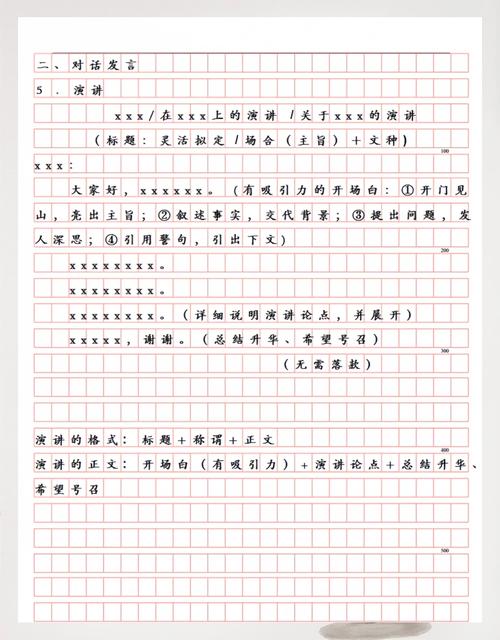 二、对话发言
5．演讲
xxx/在xxx上的演讲/关于xxx的演讲
(标题：灵活拟定/场合(主旨)+文种)
100
xxx：
大家好，xxxxxx。(有吸引力的开场白：①开门见
山，亮出主旨；②叙述事实，交代背景；③提出问题，发
人深思；④引用警句，引出下文)
200
xxxxxxxx。
xxxxxxxx。
xxxxxxxx。(详细说明演讲论点，并展开)
xxxxx，谢谢。(总结升华、希望号召)
300
(无需落款)
演讲的格式：标题+称谓+正文
400
演讲的正文：开场白(有吸引力)+演讲论点+总结升华、
希望号召
500